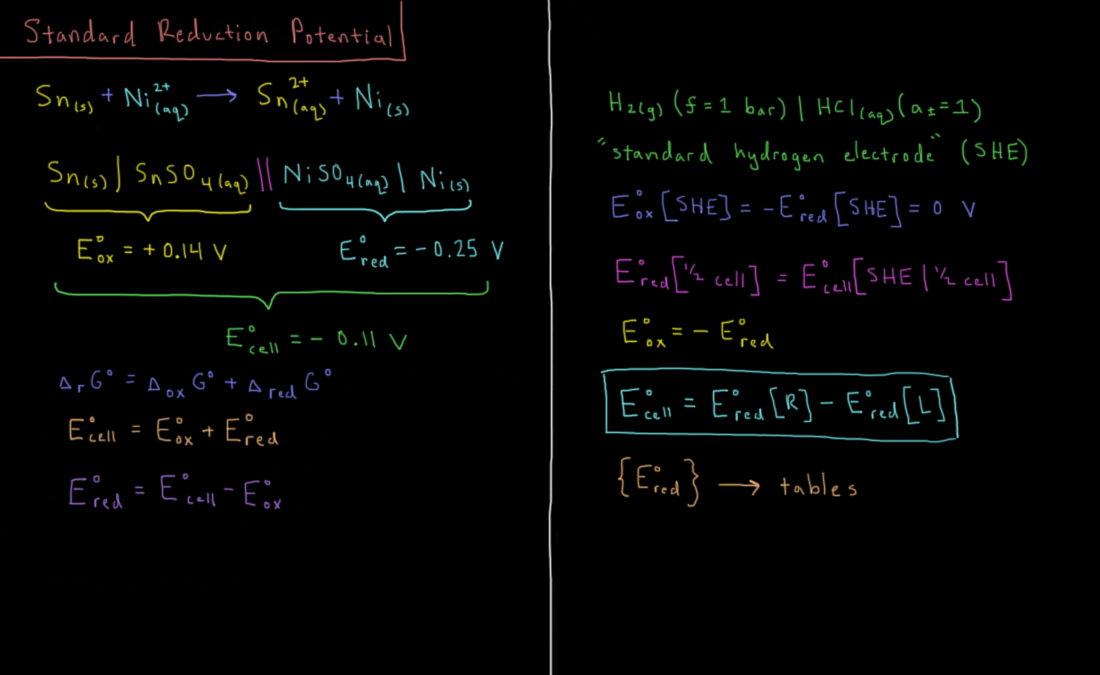 Standard Reduction Potential
Sn(s) + Ni²⁺(aq) → Sn²⁺(aq) + Ni(s)
Sn(s) | SnSO₄(aq) || NiSO₄(aq) | Ni(s)
E°ox = + 0.14 V
E°red = - 0.25 V
E°cell = - 0.11 V
ΔrG° = ΔoxG° + ΔredG°
E°cell = E°ox + E°red
E°red = E°cell - E°ox
H₂(g) (f = 1 bar) | HCl(aq) (a± = 1)
"standard hydrogen electrode" (SHE)
E°ox [SHE] = - E°red [SHE] = 0 V
E°red [½ cell] = E°cell [SHE | ½ cell]
E°ox = - E°red
E°cell = E°red [R] - E°red [L]
{E°red} → tables